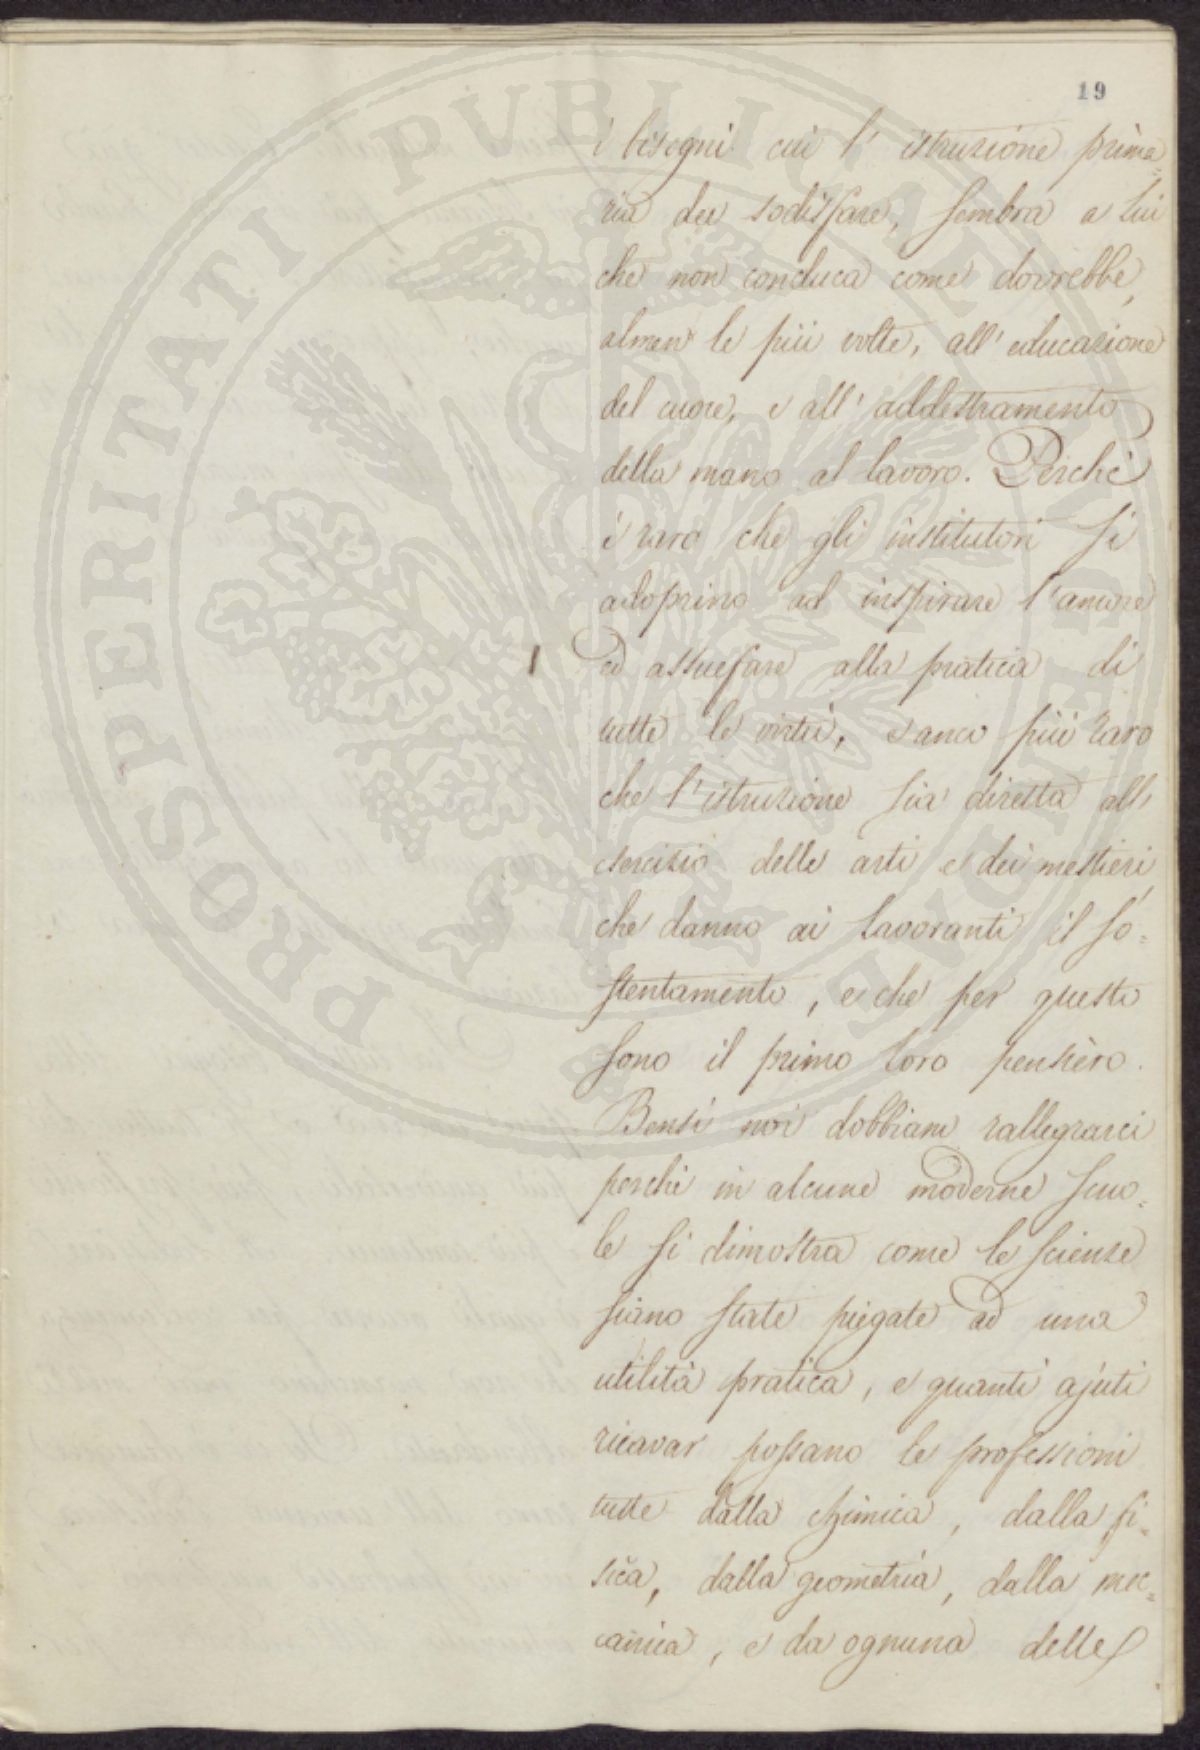 19
i bisogni cui l' istruzione prima=
ria dee sodisfare, sembra a lui
che non conduca come dovrebbe,
almen le più volte, all' educazione
del cuore, e all' addestramento
della mano al lavoro. Perchè
è raro che gli institutori si
adoprino ad inspirare l'amore
ed assuefare alla pratica di
tutte le virtù, e anco più raro
che l'istruzione sia diretta all'
esercizio delle arti e dei mestieri,
che danno ai lavoranti il so=
stentamento, e che per questo
sono il primo loro pensièro.
Bensì noi dobbiam rallegrarci
perchè in alcune moderne scuo=
le si dimostra come le scienze
siano state piegate ad una
utilità pratica, e quanti ajuti
ricavar possano le professioni
tutte dalla chimica, dalla fi=
sica, dalla geometria, dalla mec=
canica, e da ognuna delle
PROSPERITATI PVBLICAE AVGENDAE